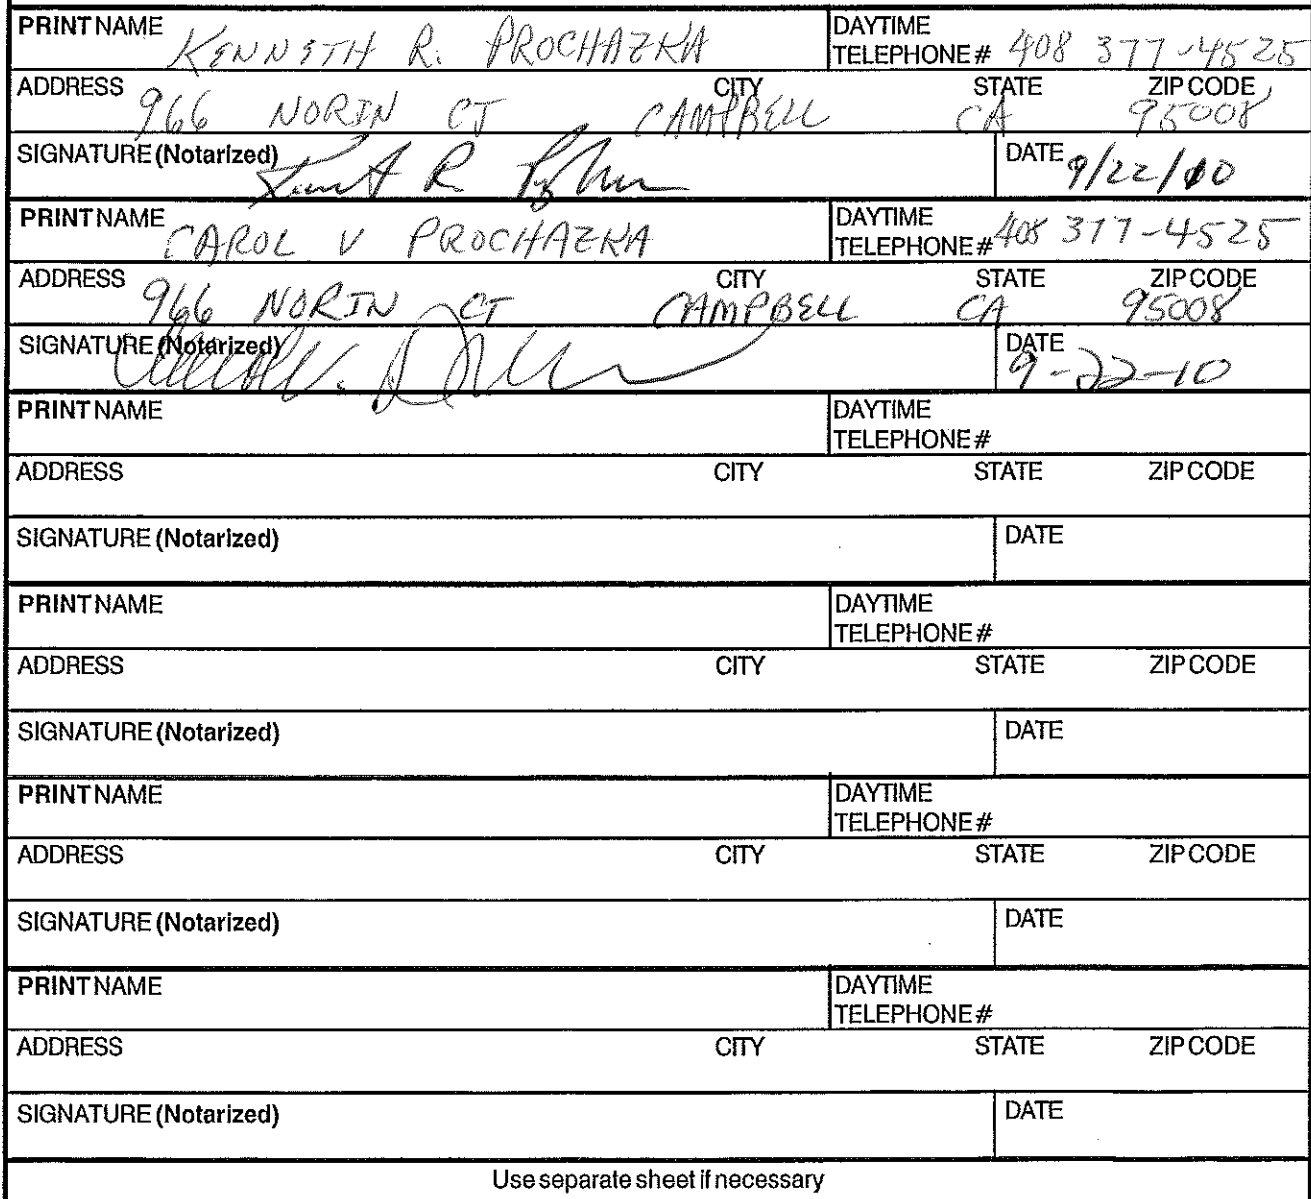 PRINT NAME KENNETH R. PROCHAZKA DAYTIME TELEPHONE # 408 377-4525
ADDRESS 966 NORIN CT CITY CAMPBELL STATE CA ZIP CODE 95008
SIGNATURE (Notarized) DATE 9/22/10
PRINT NAME CAROL V PROCHAZKA DAYTIME TELEPHONE # 408 377-4525
ADDRESS 966 NORIN CT CITY CAMPBELL STATE CA ZIP CODE 95008
SIGNATURE (Notarized) DATE 9-22-10
PRINT NAME DAYTIME TELEPHONE #
ADDRESS CITY STATE ZIP CODE
SIGNATURE (Notarized) DATE
PRINT NAME DAYTIME TELEPHONE #
ADDRESS CITY STATE ZIP CODE
SIGNATURE (Notarized) DATE
PRINT NAME DAYTIME TELEPHONE #
ADDRESS CITY STATE ZIP CODE
SIGNATURE (Notarized) DATE
PRINT NAME DAYTIME TELEPHONE #
ADDRESS CITY STATE ZIP CODE
SIGNATURE (Notarized) DATE
Use separate sheet if necessary